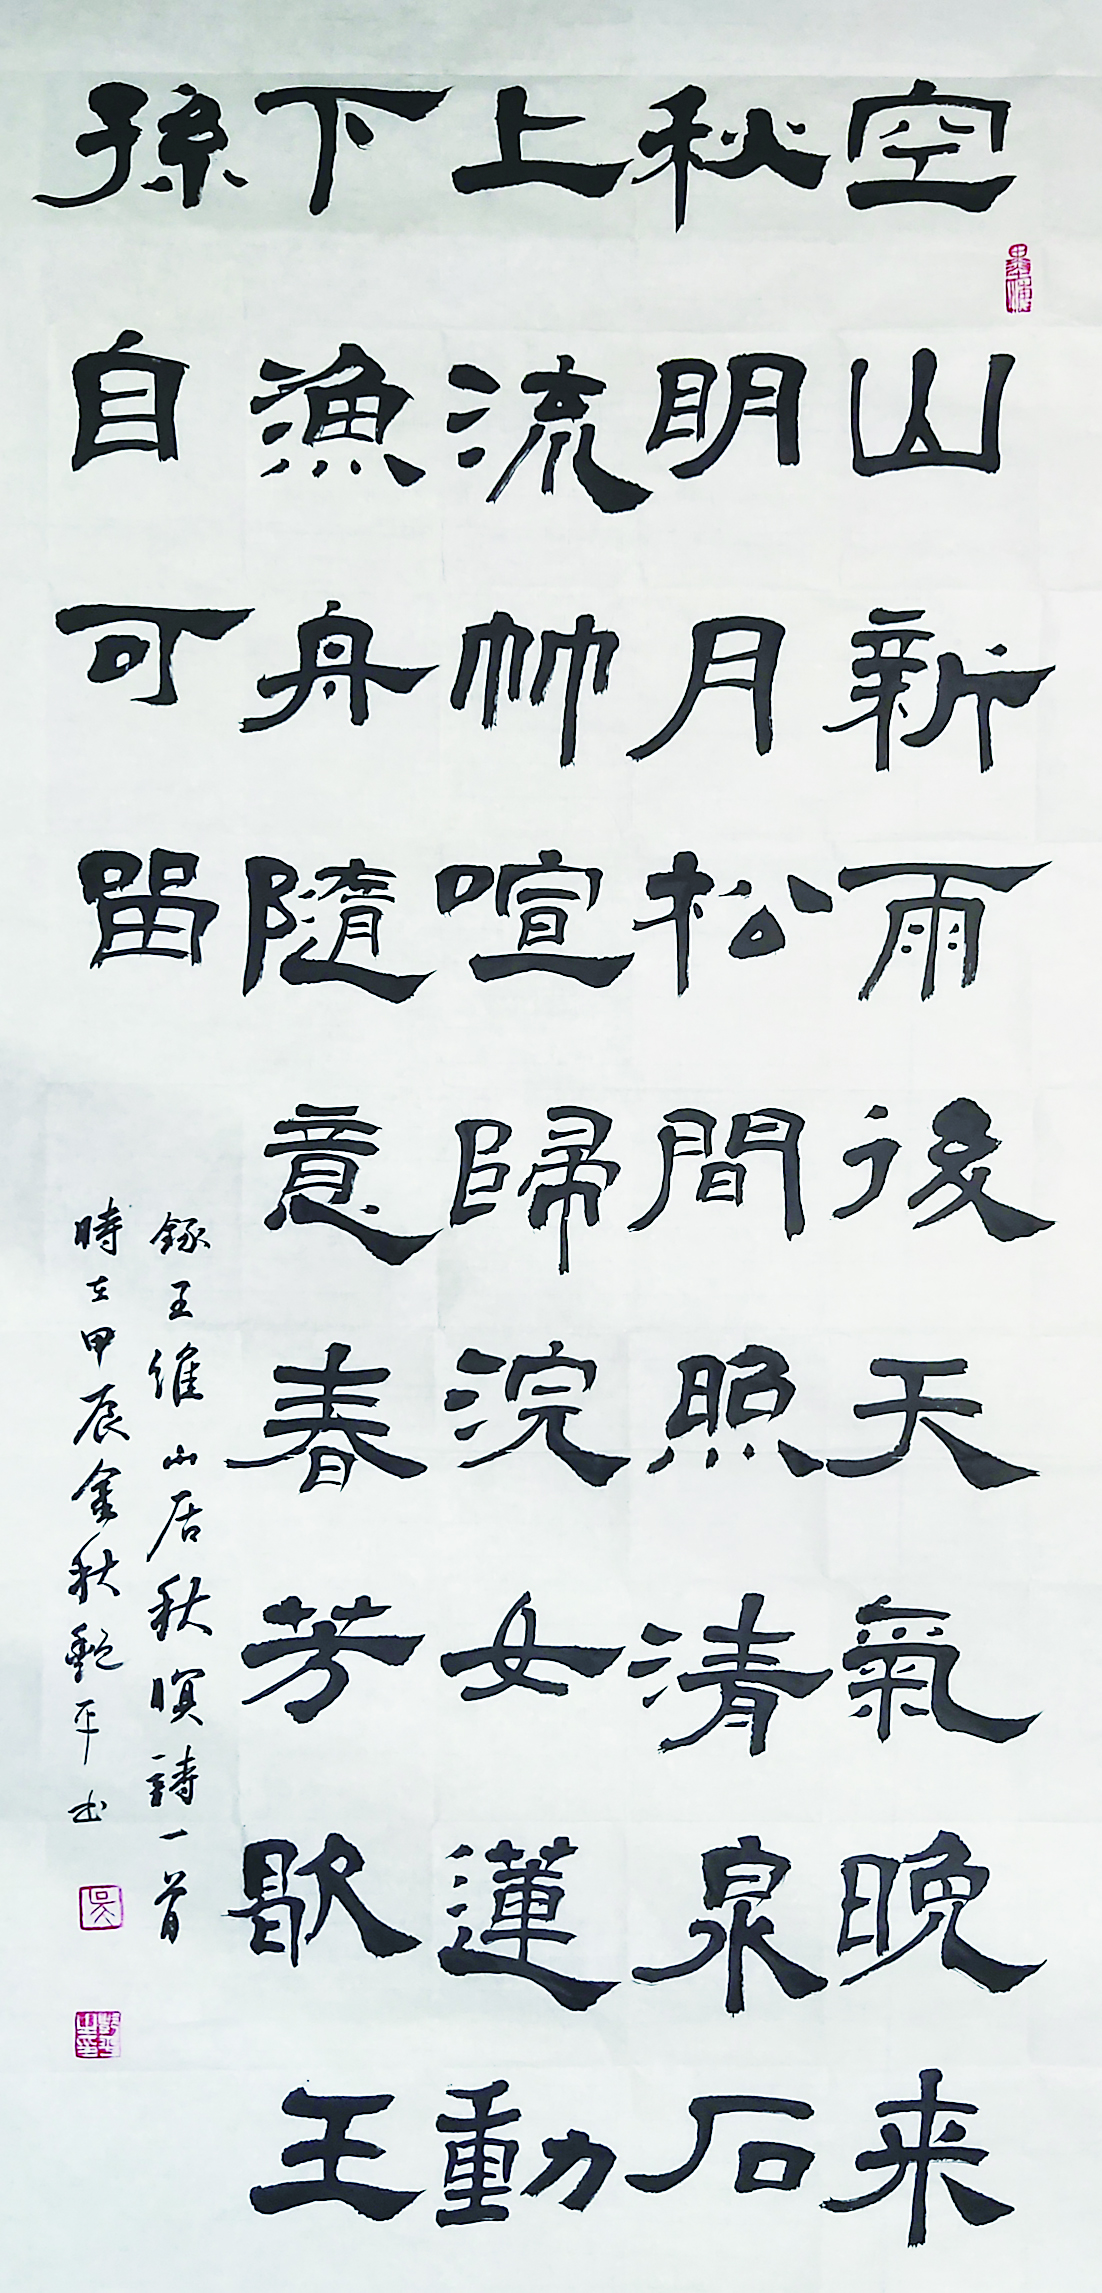 空山新雨後天氣晚来
秋明月松間照清泉石
上流竹喧歸浣女蓮動
下漁舟隨意春芳歇王
孫自可留
錄王維山居秋暝詩一首
時在甲辰金秋平书
吳